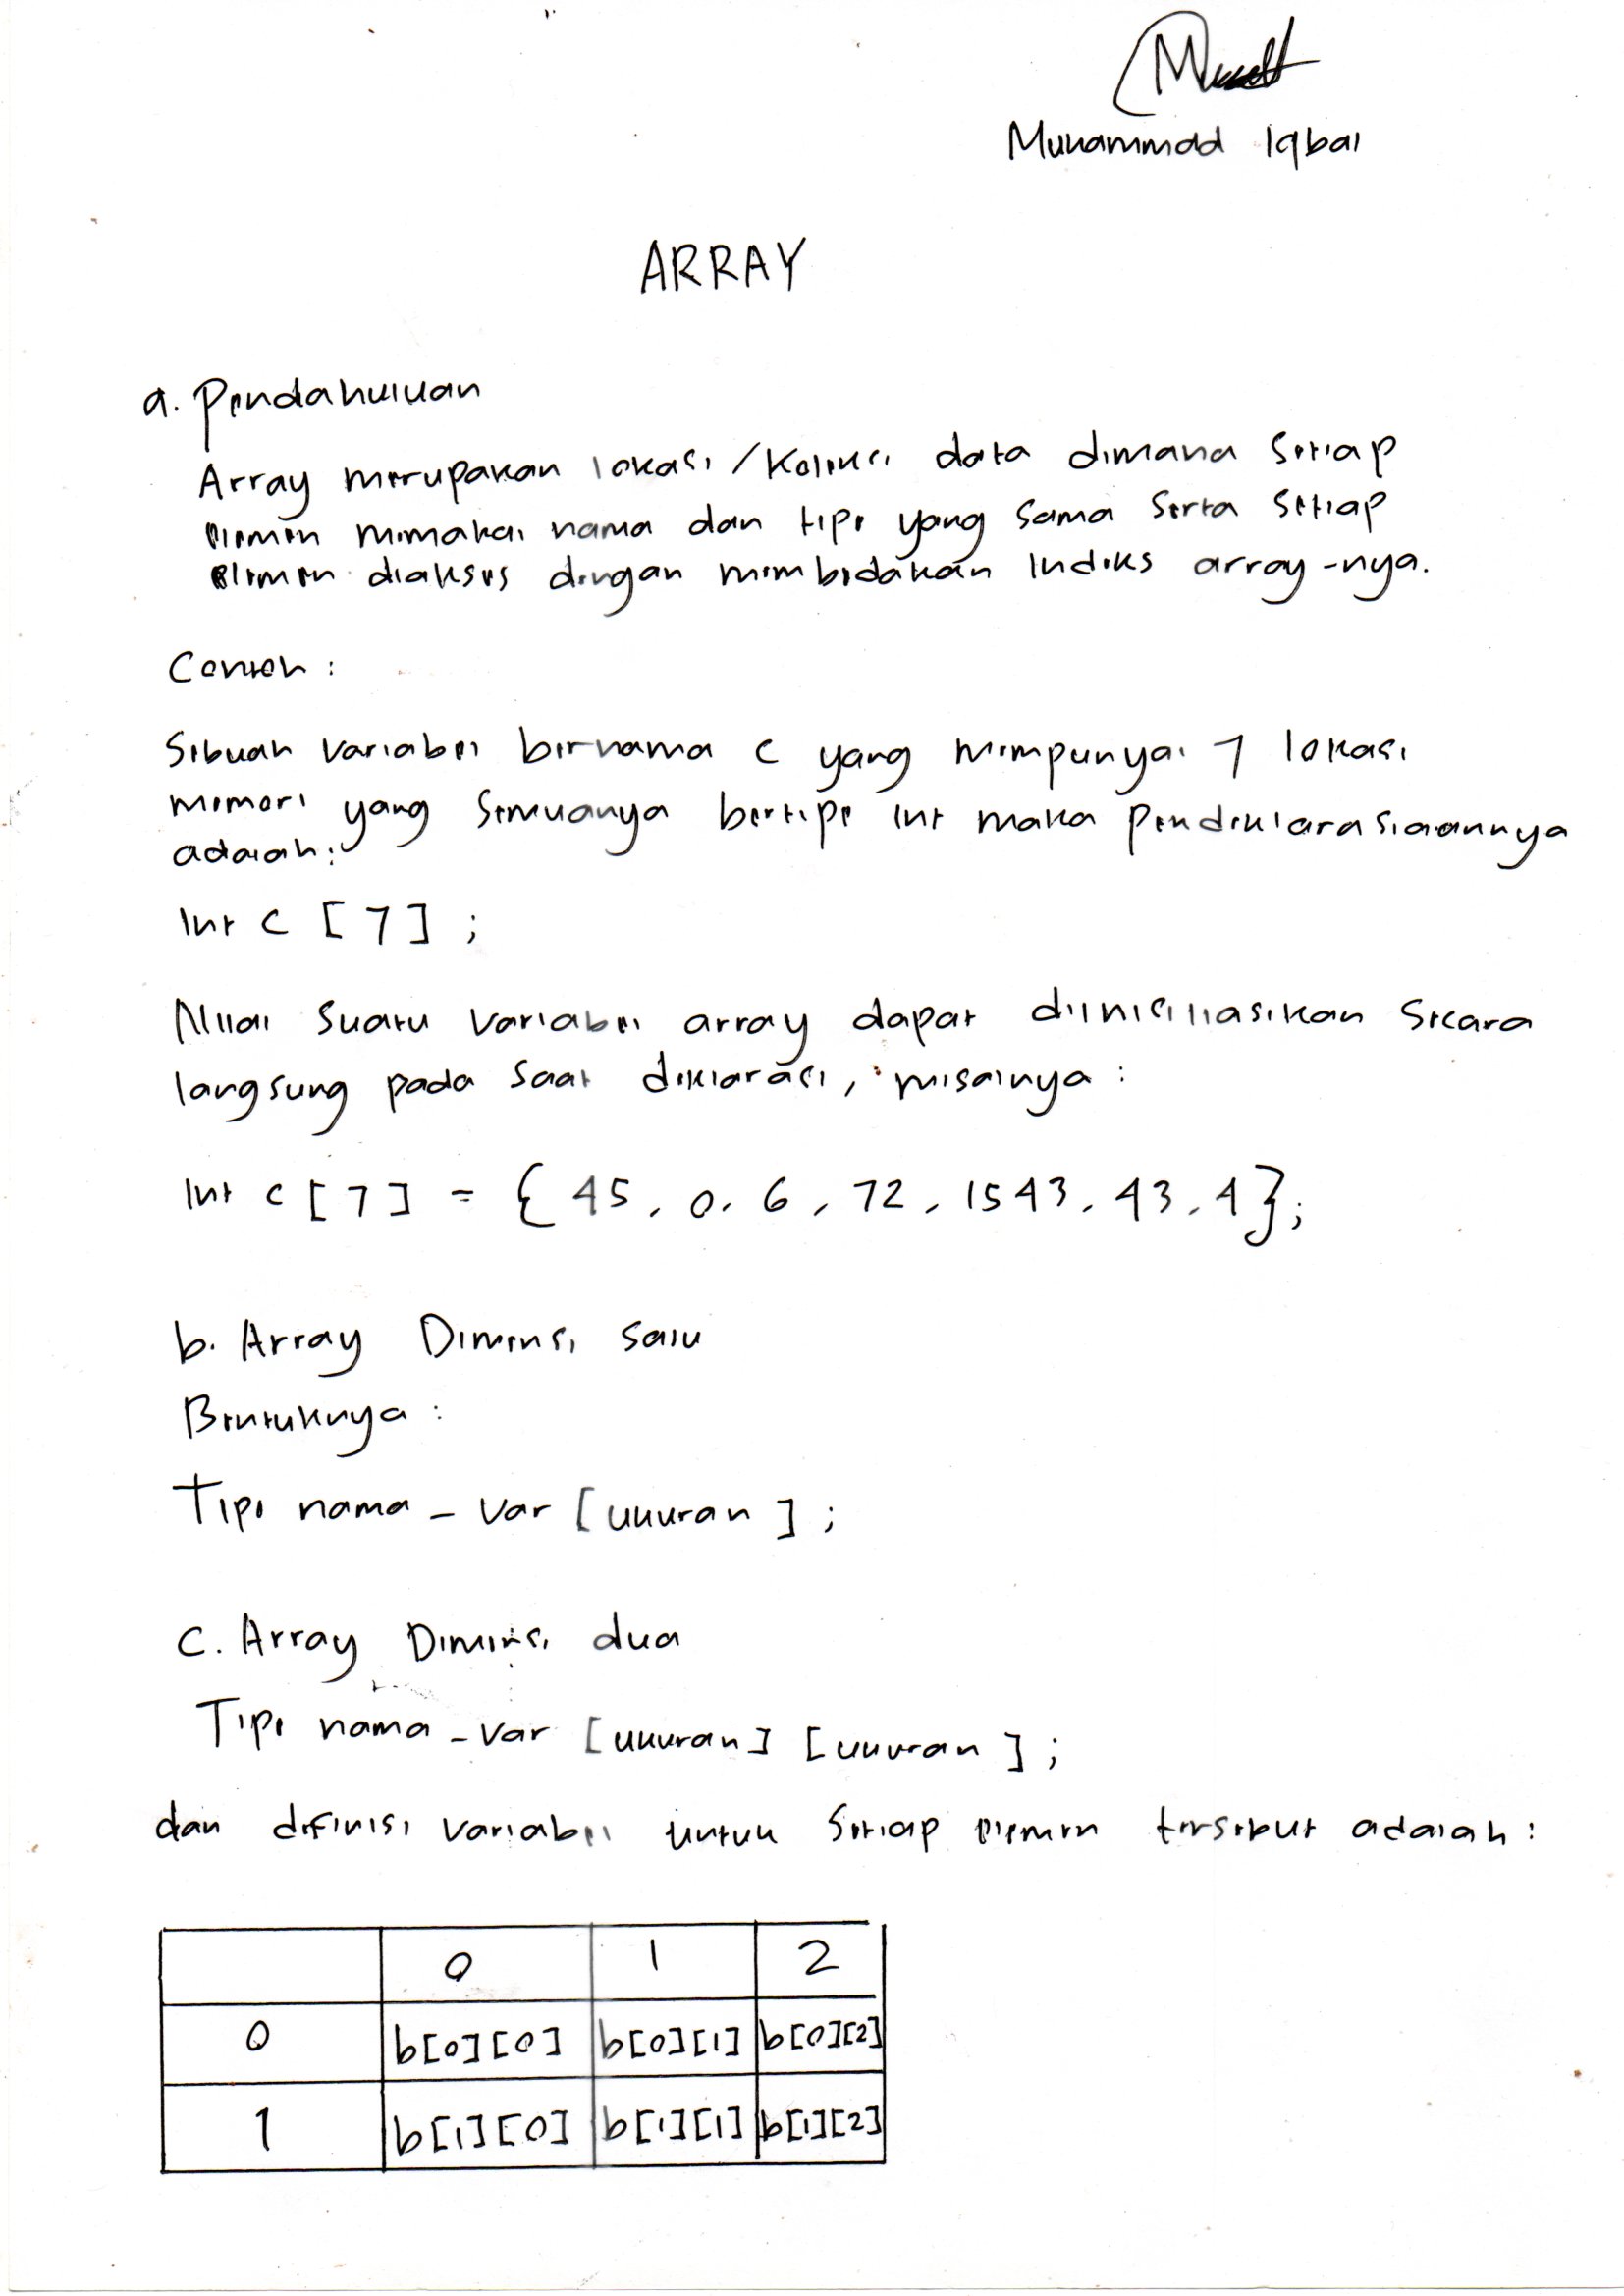 Muhammad Iqbal
ARRAY
a. Pendahuluan
Array merupakan lokasi/koleksi data dimana setiap
elemen memakai nama dan tipe yang sama serta setiap
elemen diakses dengan membedakan indeks array-nya.
Contoh :
Sebuah variabel bernama c yang mempunyai 7 lokasi
memori yang semuanya bertipe int maka pendeklarasiaannya
adalah:
Int c [7] ;
Nilai suatu variabel array dapat diinisiliasikan secara
langsung pada saat deklarasi, misalnya :
Int c [7] = { 45, 0, 6, 72, 1543, 43, 4};
b. Array Dimensi satu
Bentuknya :
Tipe nama_var [ukuran] ;
c. Array Dimensi dua
Tipe nama_var [ukuran] [ukuran] ;
dan definisi variabel untuk setiap elemen tersebut adalah :
0 1 2
0 b[0][0] b[0][1] b[0][2]
1 b[1][0] b[1][1] b[1][2]